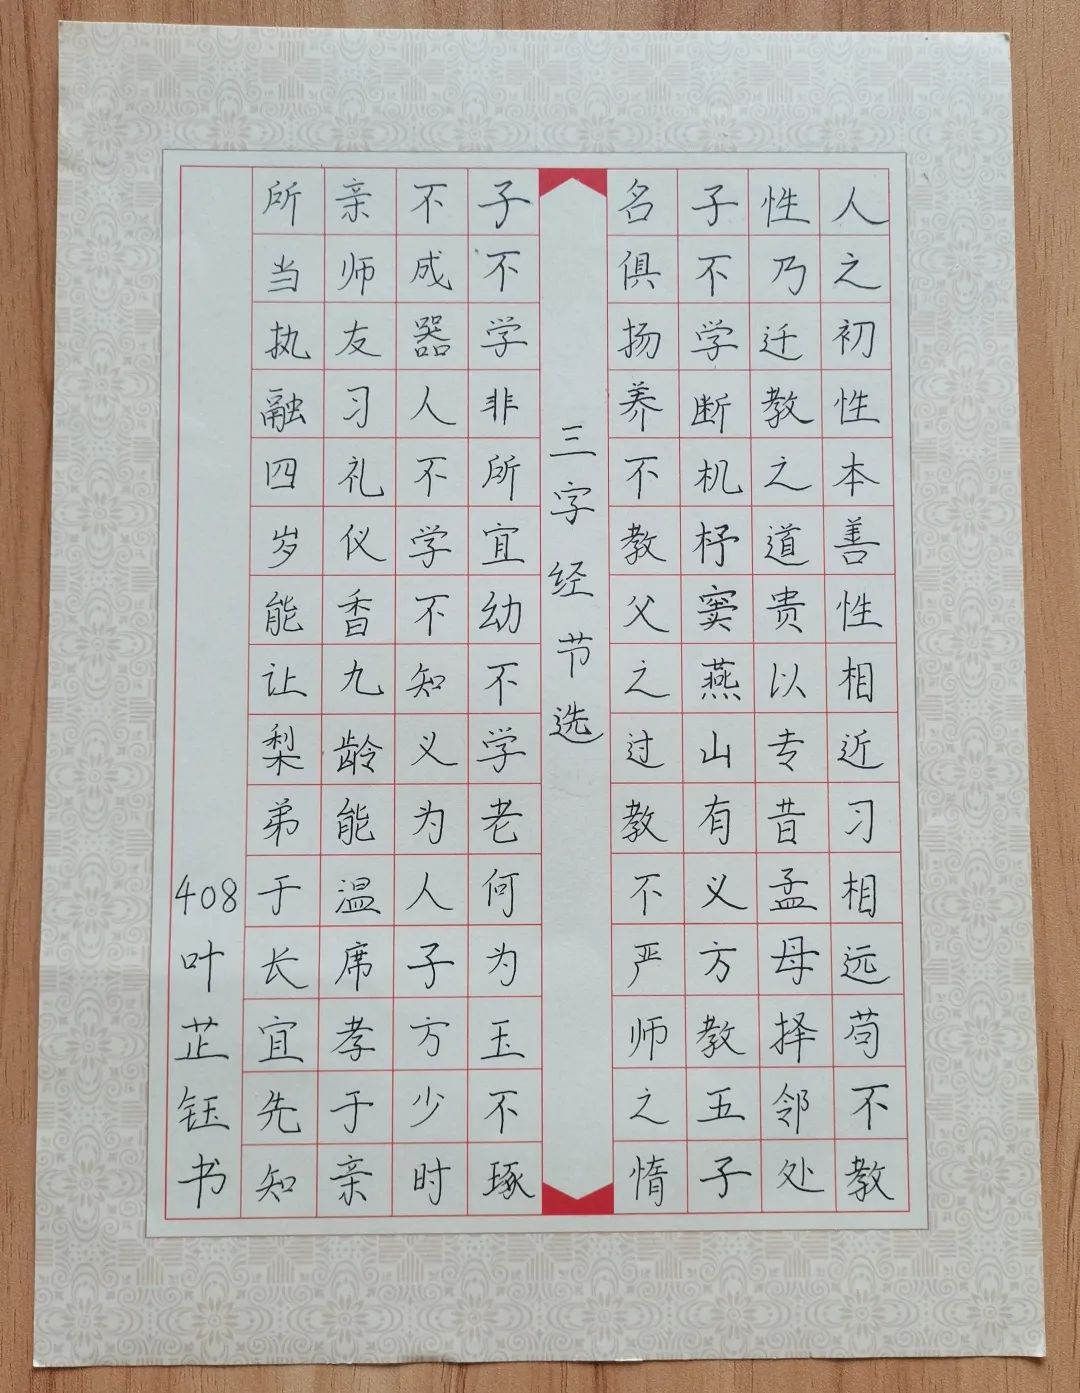 人之初性本善性相近习相远苟不教
性乃迁教之道贵以专昔孟母择邻处
子不学断机杼窦燕山有义方教五子
名俱扬养不教父之过教不严师之惰
三字经节选
子不学非所宜幼不学老何为玉不琢
不成器人不学不知义为人子方少时
亲师友习礼仪香九龄能温席孝于亲
所当执融四岁能让梨弟于长宜先知
408叶芷钰书